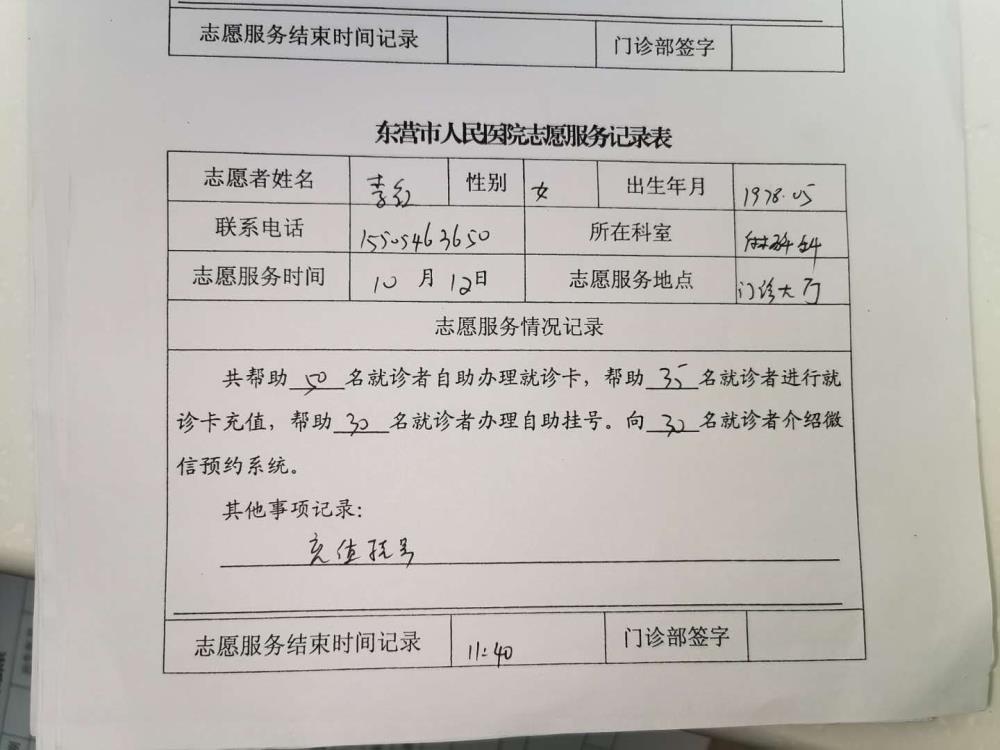 志愿服务结束时间记录 门诊部签字
东营市人民医院志愿服务记录表
志愿者姓名 李红 性别 女 出生年月 1978.05
联系电话 15505463650 所在科室
志愿服务时间 10月12日 志愿服务地点 门诊大厅
志愿服务情况记录
共帮助50名就诊者自助办理就诊卡，帮助35名就诊者进行就
诊卡充值，帮助30名就诊者办理自助挂号。向30名就诊者介绍微
信预约系统。
其他事项记录：
充值挂号
志愿服务结束时间记录 11:40 门诊部签字